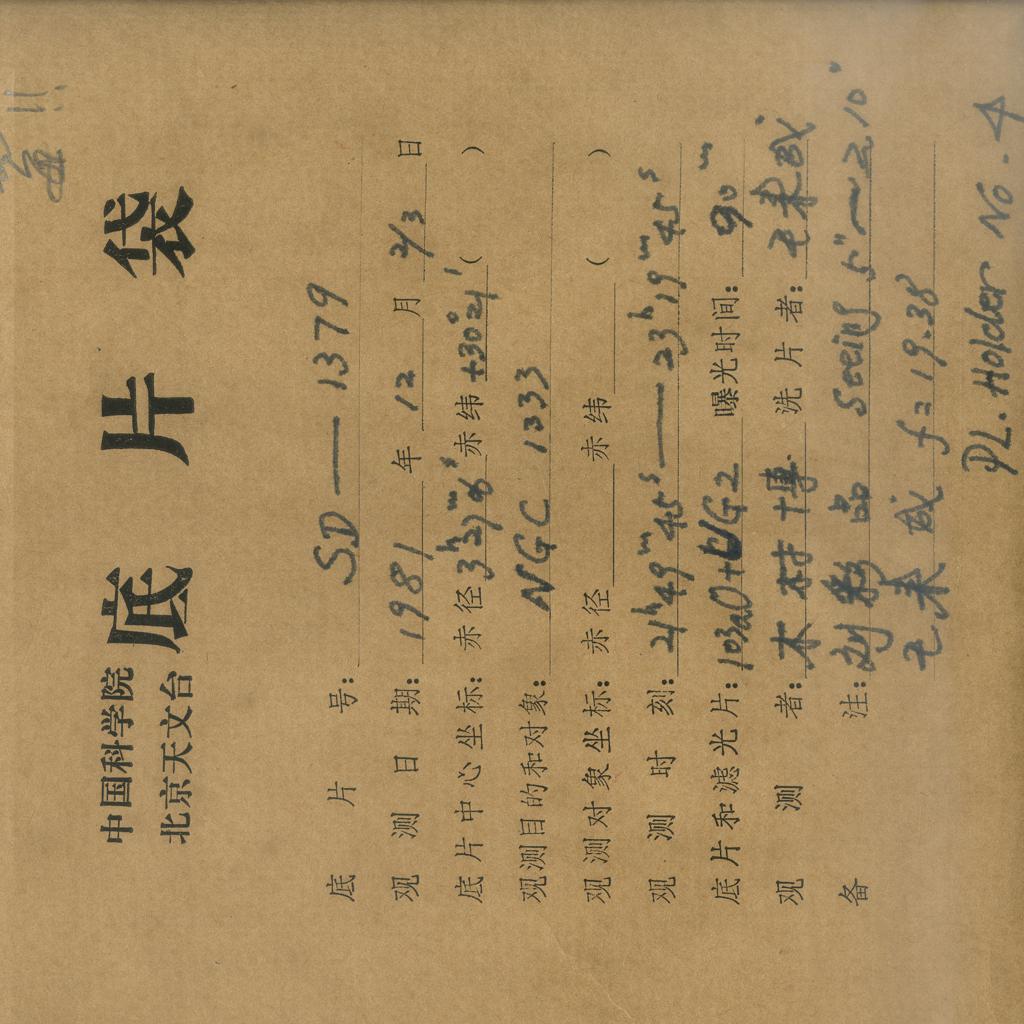 中国科学院
北京天文台
底片袋
底片号: SD—1379
观测日期: 1981年12月2/3日
底片中心坐标: 赤径3h27m6s赤纬+30°21′( )
观测目的和对象: NGC 1333
观测对象坐标: 赤径 赤纬 ( )
观测时刻: 21h49m45s—23h19m45s
底片和滤光片: 103aO+UG2 曝光时间: 90m
观测者: 木村博 洗片者: 毛来成
备注: 刘彩品 Seeing 5"~10"
毛来成 f=19.38
PL. Holder No. 4